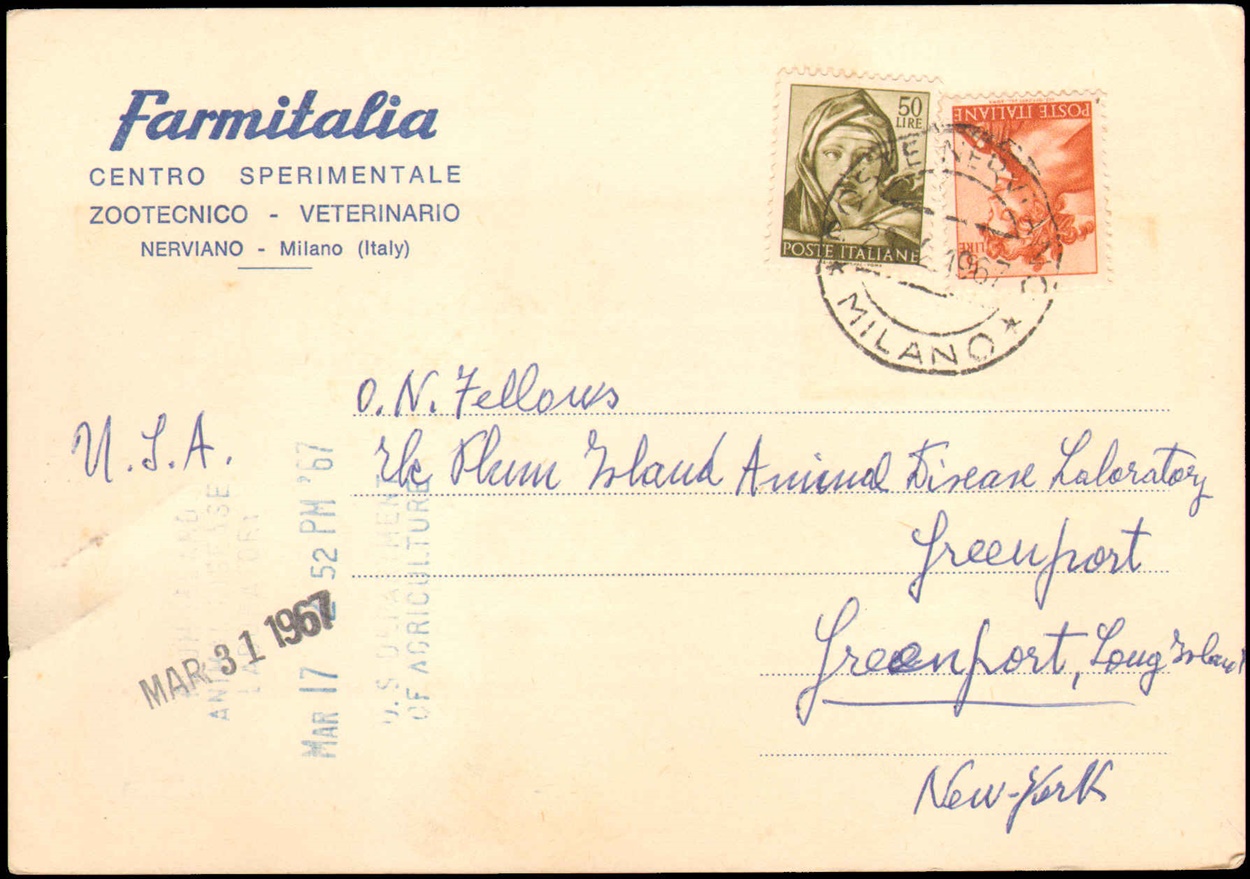 Farmitalia
CENTRO SPERIMENTALE
ZOOTECNICO - VETERINARIO
NERVIANO - Milano (Italy)
50
LIRE
POSTE ITALIANE
POSTE ITALIANE
LIRE
1967
* MILANO *
O. N. Fellows
U.S.A.
Plum Island Animal Disease Laboratory
Greenport
Greenport, Long Island
New-York
MAR 31 1967
MAR 17 52 PM '67
U.S. DEPARTMENT
OF AGRICULTURE